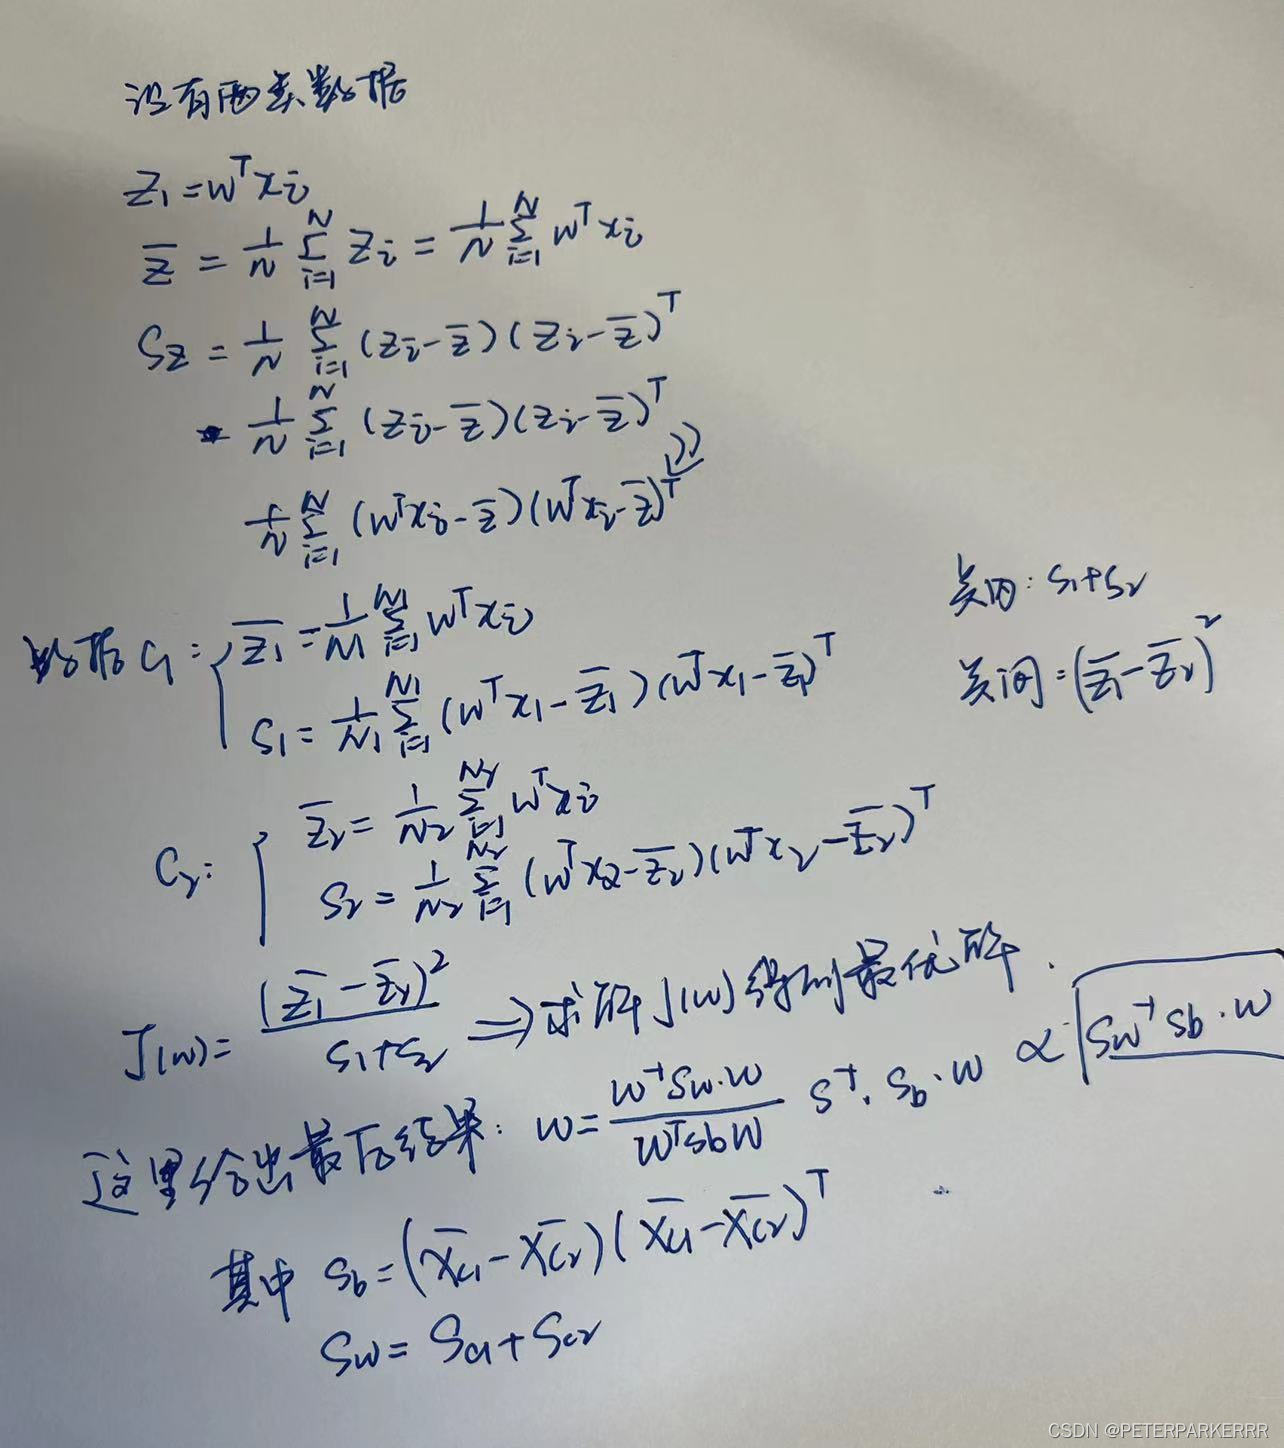 设有两类数据
Z₁=wᵀxᵢ
z̅ = 1/N Σᵢ₌₁ᴺ Zᵢ = 1/N Σᵢ₌₁ᴺ wᵀxᵢ
Sz = 1/N Σᵢ₌₁ᴺ (zᵢ-z̅)(zᵢ-z̅)ᵀ
1/N Σᵢ₌₁ᴺ (zᵢ-z̅)(zᵢ-z̅)ᵀ
1/N Σᵢ₌₁ᴺ (wᵀxᵢ-z̅)(wᵀxᵢ-z̅)ᵀ
类内: S₁+S₂
数据C₁: { z̅₁=1/N₁ Σᵢ₌₁ᴺ¹ wᵀxᵢ
类间=(z̅₁-z̅₂)²
S₁= 1/N₁ Σᵢ₌₁ᴺ¹ (wᵀx₁-z̅₁)(wᵀx₁-z̅₁)ᵀ
C₂: { z̅₂= 1/N₂ Σᵢ₌₁ᴺ² wᵀxᵢ
S₂= 1/N₂ Σᵢ₌₁ᴺ² (wᵀx₂-z̅₂)(wᵀx₂-z̅₂)ᵀ
J(w)= (z̅₁-z̅₂)² / S₁+S₂ ⇒ 求解J(w)得到最优解.
这里给出最后结果: w= w⁻¹Sw·w / wᵀSbw S⁻¹·Sb·w ∝ Sw⁻¹Sb·w
其中 Sb=(X̅c₁-X̅c₂)(X̅c₁-X̅c₂)ᵀ
Sw= Sc₁+Sc₂
CSDN @PETERPARKERRR